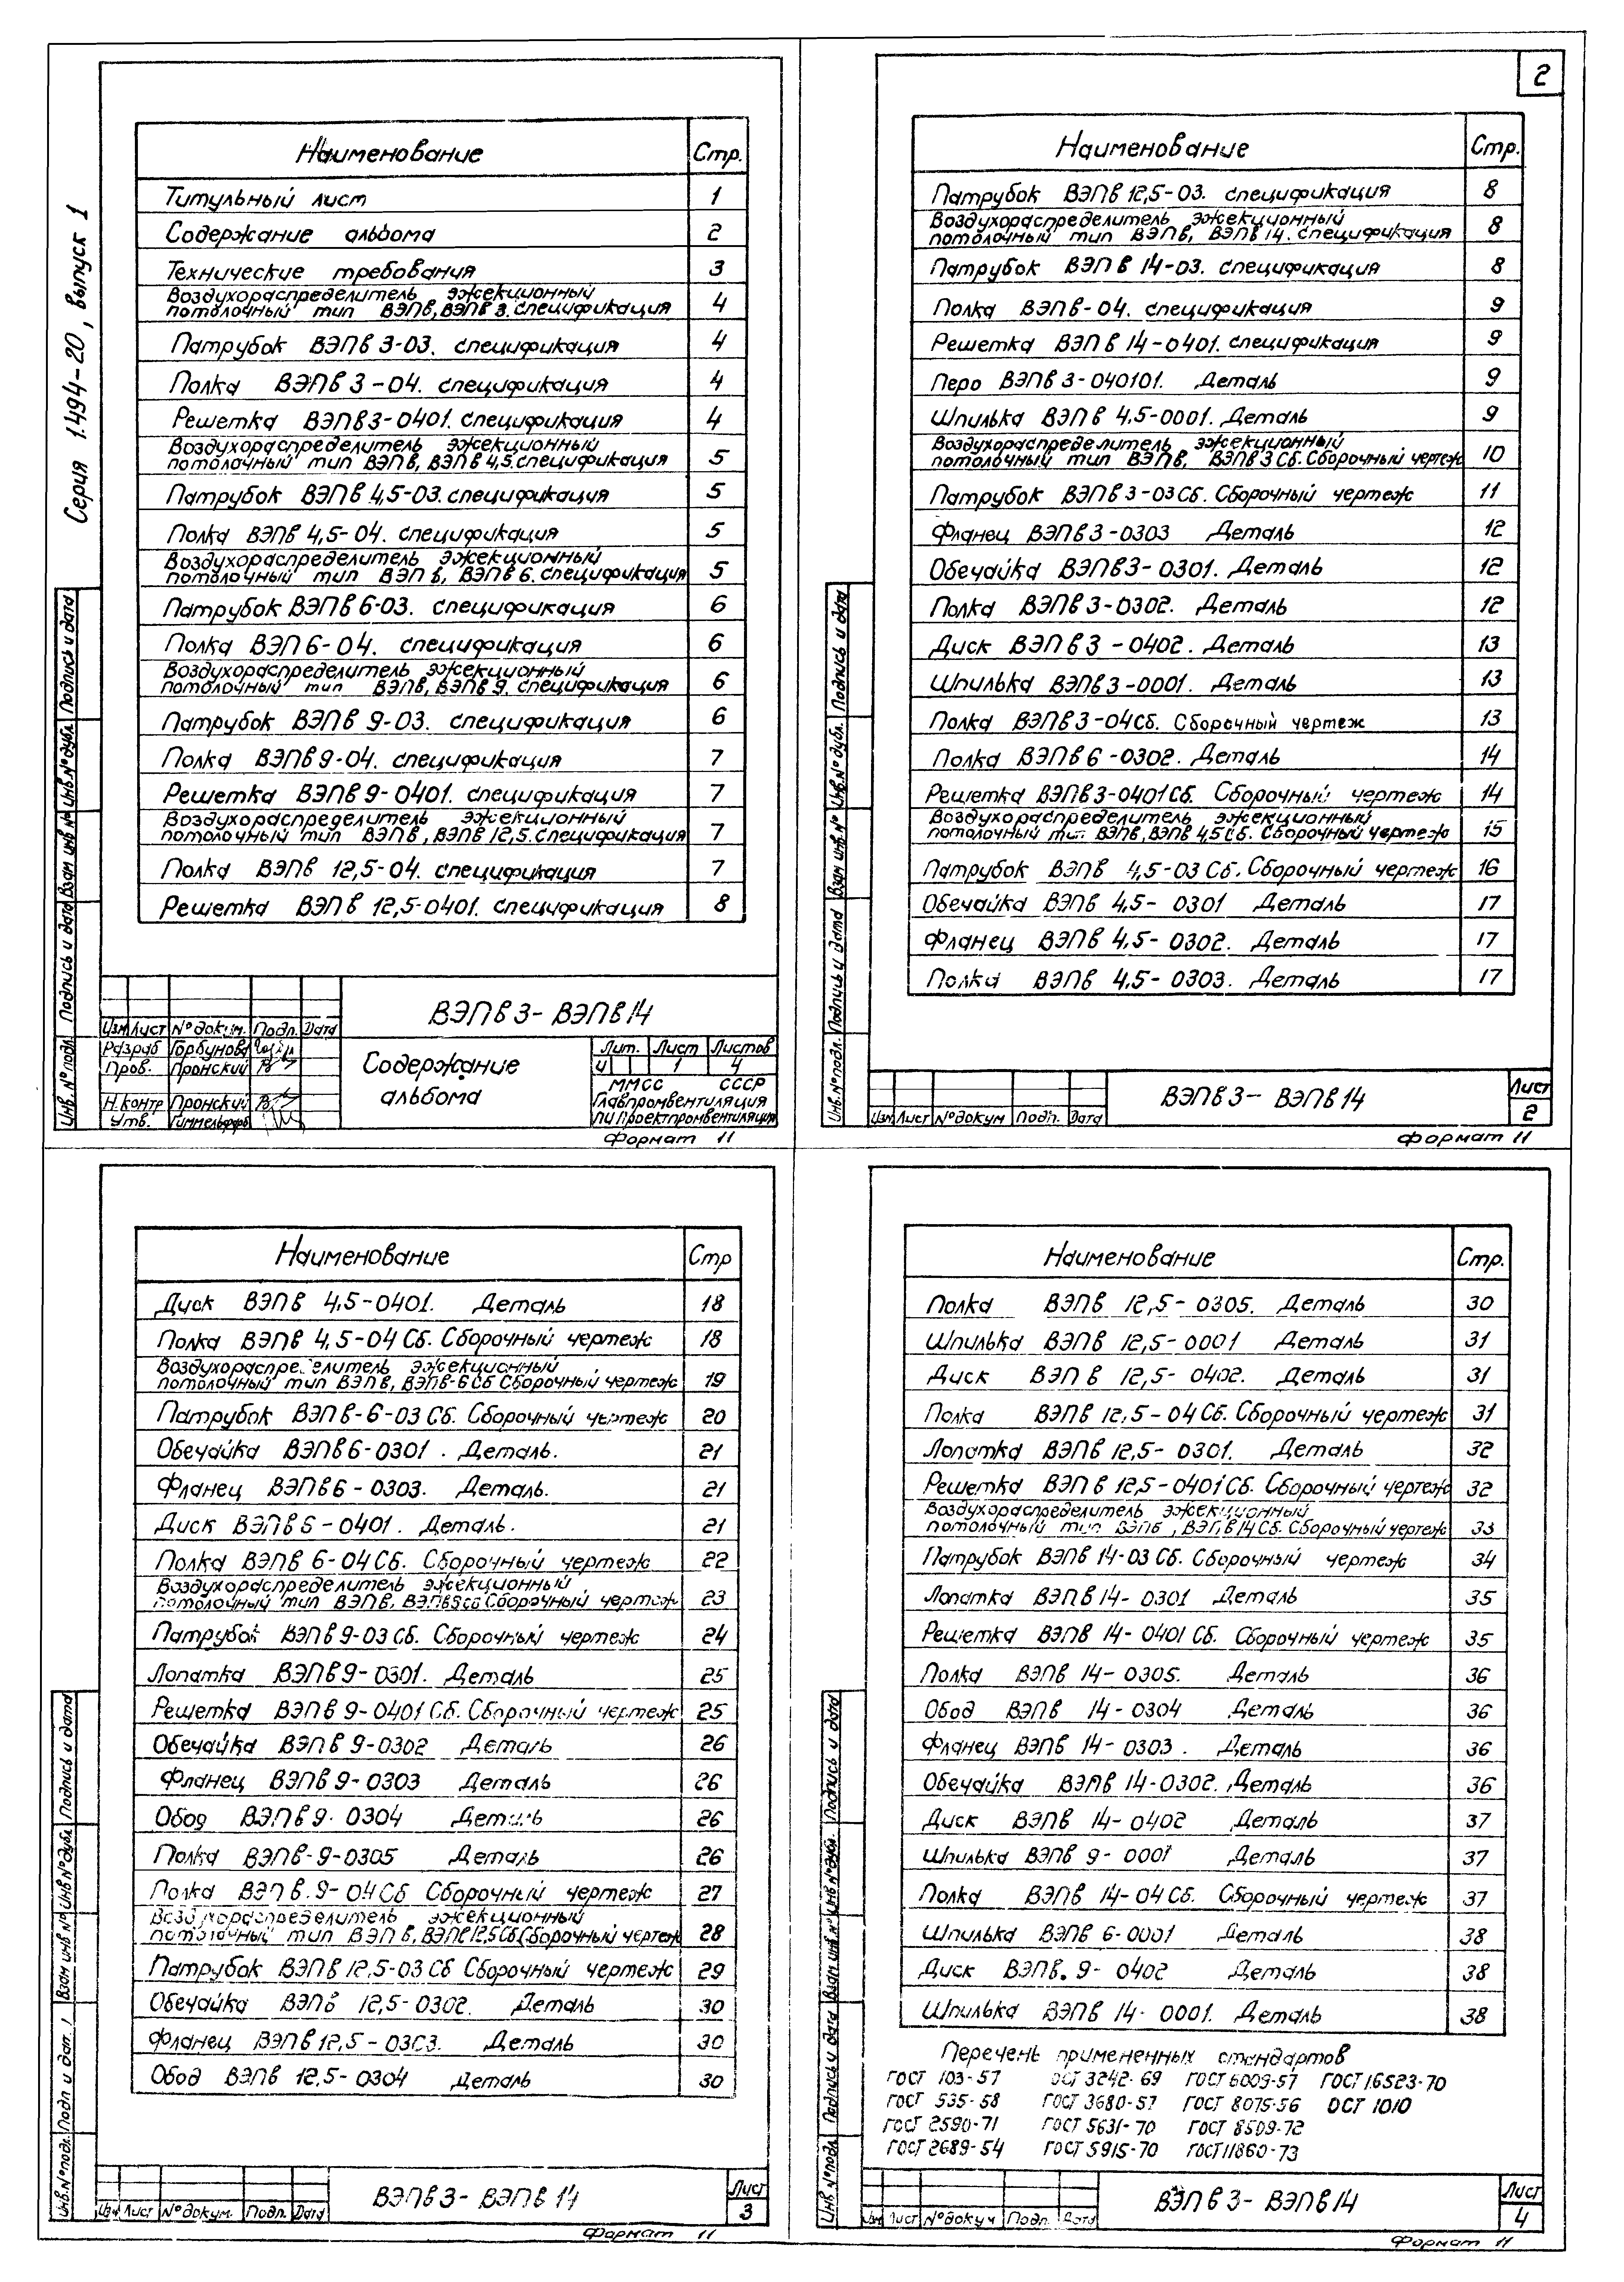 Серия 1.494-20, выпуск 1
Наименование Стр.
Титульный лист 1
Содержание альбома 2
Технические требования 3
Воздухораспределитель эжекционный
потолочный тип ВЭПв, ВЭПв 3. спецификация 4
Патрубок ВЭПв 3-03. спецификация 4
Полка ВЭПв 3-04. спецификация 4
Решетка ВЭПв3-0401. спецификация 4
Воздухораспределитель эжекционный
потолочный тип ВЭПв, ВЭПв 4,5. спецификация 5
Патрубок ВЭПв 4,5-03. спецификация 5
Полка ВЭПв 4,5-04. спецификация 5
Воздухораспределитель эжекционный
потолочный тип ВЭПв, ВЭПв 6. спецификация 5
Патрубок ВЭПв 6-03. спецификация 6
Полка ВЭП 6-04. спецификация 6
Воздухораспределитель эжекционный
потолочный тип ВЭПв, ВЭПв 9. спецификация 6
Патрубок ВЭПв 9-03. спецификация 6
Полка ВЭПв 9-04. спецификация 7
Решетка ВЭПв 9-0401. спецификация 7
Воздухораспределитель эжекционный
потолочный тип ВЭПв, ВЭПв 12,5. спецификация 7
Полка ВЭПв 12,5-04. спецификация 7
Решетка ВЭПв 12,5-0401. спецификация 8
Инв. № подл. Подпись и дата Взам инв № Инв.№ дубл. Подпись и дата
Изм Лист № докум. Подп. Дата
Разраб Горбунова
Пров. Пронский
Н.контр Пронский
Утв.
ВЭПв 3- ВЭПв 14
Содержание
альбома
Лит. Лист Листов
И 1 4
ММСС СССР
Главпромвентиляция
ПИ Проектпромвентиляция
Формат 11
2
Наименование Стр.
Патрубок ВЭПв 12,5-03. спецификация 8
Воздухораспределитель эжекционный
потолочный тип ВЭПв, ВЭПв 14. спецификация 8
Патрубок ВЭПв 14-03. спецификация 8
Полка ВЭПв-04. спецификация 9
Решетка ВЭПв 14-0401. спецификация 9
Перо ВЭПв 3-040101. Деталь 9
Шпилька ВЭПв 4,5-0001. Деталь 9
Воздухораспределитель эжекционный
потолочный тип ВЭПв, ВЭПв 3 Сб. Сборочный чертеж 10
Патрубок ВЭПв 3-03 Сб. Сборочный чертеж 11
Фланец ВЭПв 3-0303 Деталь 12
Обечайка ВЭПв3-0301. Деталь 12
Полка ВЭПв 3-0302. Деталь 12
Диск ВЭПв 3-0402. Деталь 13
Шпилька ВЭПв 3-0001. Деталь 13
Полка ВЭПв 3-04Сб. Сборочный чертеж 13
Полка ВЭПв 6-0302. Деталь 14
Решетка ВЭПв3-0401Сб. Сборочный чертеж 14
Воздухораспределитель эжекционный
потолочный тип ВЭПв, ВЭПв 4,5Сб. Сборочный чертеж 15
Патрубок ВЭПв 4,5-03 Сб. Сборочный чертеж 16
Обечайка ВЭПв 4,5-0301 Деталь 17
Фланец ВЭПв 4,5-0302. Деталь 17
Полка ВЭПв 4,5-0303. Деталь 17
Инв. № подл. Подпись и дата Взам инв. № Инв.№ дубл. Подпись и дата
Изм Лист № докум Подп. Дата
ВЭПв 3- ВЭПв 14
Лист
2
Формат 11
Наименование Стр
Диск ВЭПв 4,5-0401. Деталь 18
Полка ВЭПв 4,5-04 Сб. Сборочный чертеж 18
Воздухораспределитель эжекционный
потолочный тип ВЭПв, ВЭПв-6 Сб Сборочный чертеж 19
Патрубок ВЭПв-6-03 Сб. Сборочный чертеж 20
Обечайка ВЭПв6-0301. Деталь. 21
Фланец ВЭПв6-0303. Деталь. 21
Диск ВЭПв 6-0401. Деталь. 21
Полка ВЭПв 6-04 Сб. Сборочный чертеж 22
Воздухораспределитель эжекционный
потолочный тип ВЭПв, ВЭПв9сб Сборочный чертеж 23
Патрубок ВЭПв 9-03 Сб. Сборочный чертеж 24
Лопатка ВЭПв 9-0301. Деталь 25
Решетка ВЭПв 9-0401 Сб. Сборочный чертеж 25
Обечайка ВЭПв 9-0302 Деталь 26
Фланец ВЭПв 9-0303 Деталь 26
Обод ВЭПв 9-0304 Деталь 26
Полка ВЭПв-9-0305 Деталь 26
Полка ВЭПв.9-04 Сб Сборочный чертеж 27
Воздухораспределитель эжекционный
потолочный тип ВЭПв, ВЭПв12,5Сб Сборочный чертеж 28
Патрубок ВЭПв 12,5-03 Сб Сборочный чертеж 29
Обечайка ВЭПв 12,5-0302. Деталь 30
Фланец ВЭПв 12,5-0303. Деталь 30
Обод ВЭПв 12,5-0304 Деталь 30
Инв.№ подл. Подп и дат. Взам инв № Инв № дубл. Подпись и дата
Изм Лист № докум. Подп. Дата
ВЭПв 3- ВЭПв 14
Лист
3
Формат 11
Наименование Стр.
Полка ВЭПв 12,5-0305. Деталь 30
Шпилька ВЭПв 12,5-0001 Деталь 31
Диск ВЭПв 12,5-0402. Деталь 31
Полка ВЭПв 12,5-04 Сб. Сборочный чертеж 31
Лопатка ВЭПв 12,5-0301. Деталь 32
Решетка ВЭПв 12,5-0401 Сб. Сборочный чертеж 32
Воздухораспределитель эжекционный
потолочный тип ВЭПв, ВЭПв 14 Сб. Сборочный чертеж 33
Патрубок ВЭПв 14-03 Сб. Сборочный чертеж 34
Лопатка ВЭПв 14-0301 Деталь 35
Решетка ВЭПв 14-0401 Сб. Сборочный чертеж 35
Полка ВЭПв 14-0305. Деталь 36
Обод ВЭПв 14-0304 Деталь 36
Фланец ВЭПв 14-0303. Деталь 36
Обечайка ВЭПв 14-0302. Деталь 36
Диск ВЭПв 14-0402 Деталь 37
Шпилька ВЭПв 9-0001 Деталь 37
Полка ВЭПв 14-04 Сб. Сборочный чертеж 37
Шпилька ВЭПв 6-0001 Деталь 38
Диск ВЭПв. 9-0402 Деталь 38
Шпилька ВЭПв 14-0001. Деталь 38
Перечень примененных стандартов
ГОСТ 103-57 ОСТ 3242-69 ГОСТ 6009-57 ГОСТ 16523-70
ГОСТ 535-58 ГОСТ 3680-57 ГОСТ 8075-56 ОСТ 1010
ГОСТ 2590-71 ГОСТ 5631-70 ГОСТ 8509-72
ГОСТ 2689-54 ГОСТ 5915-70 ГОСТ 11860-73
Инв № подл Подпись и дата Взам инв.№ Инв № дубл. Подпись и дата
Изм Лист № докум Подп. Дата
ВЭПв 3- ВЭПв 14
Лист
4
Формат 11